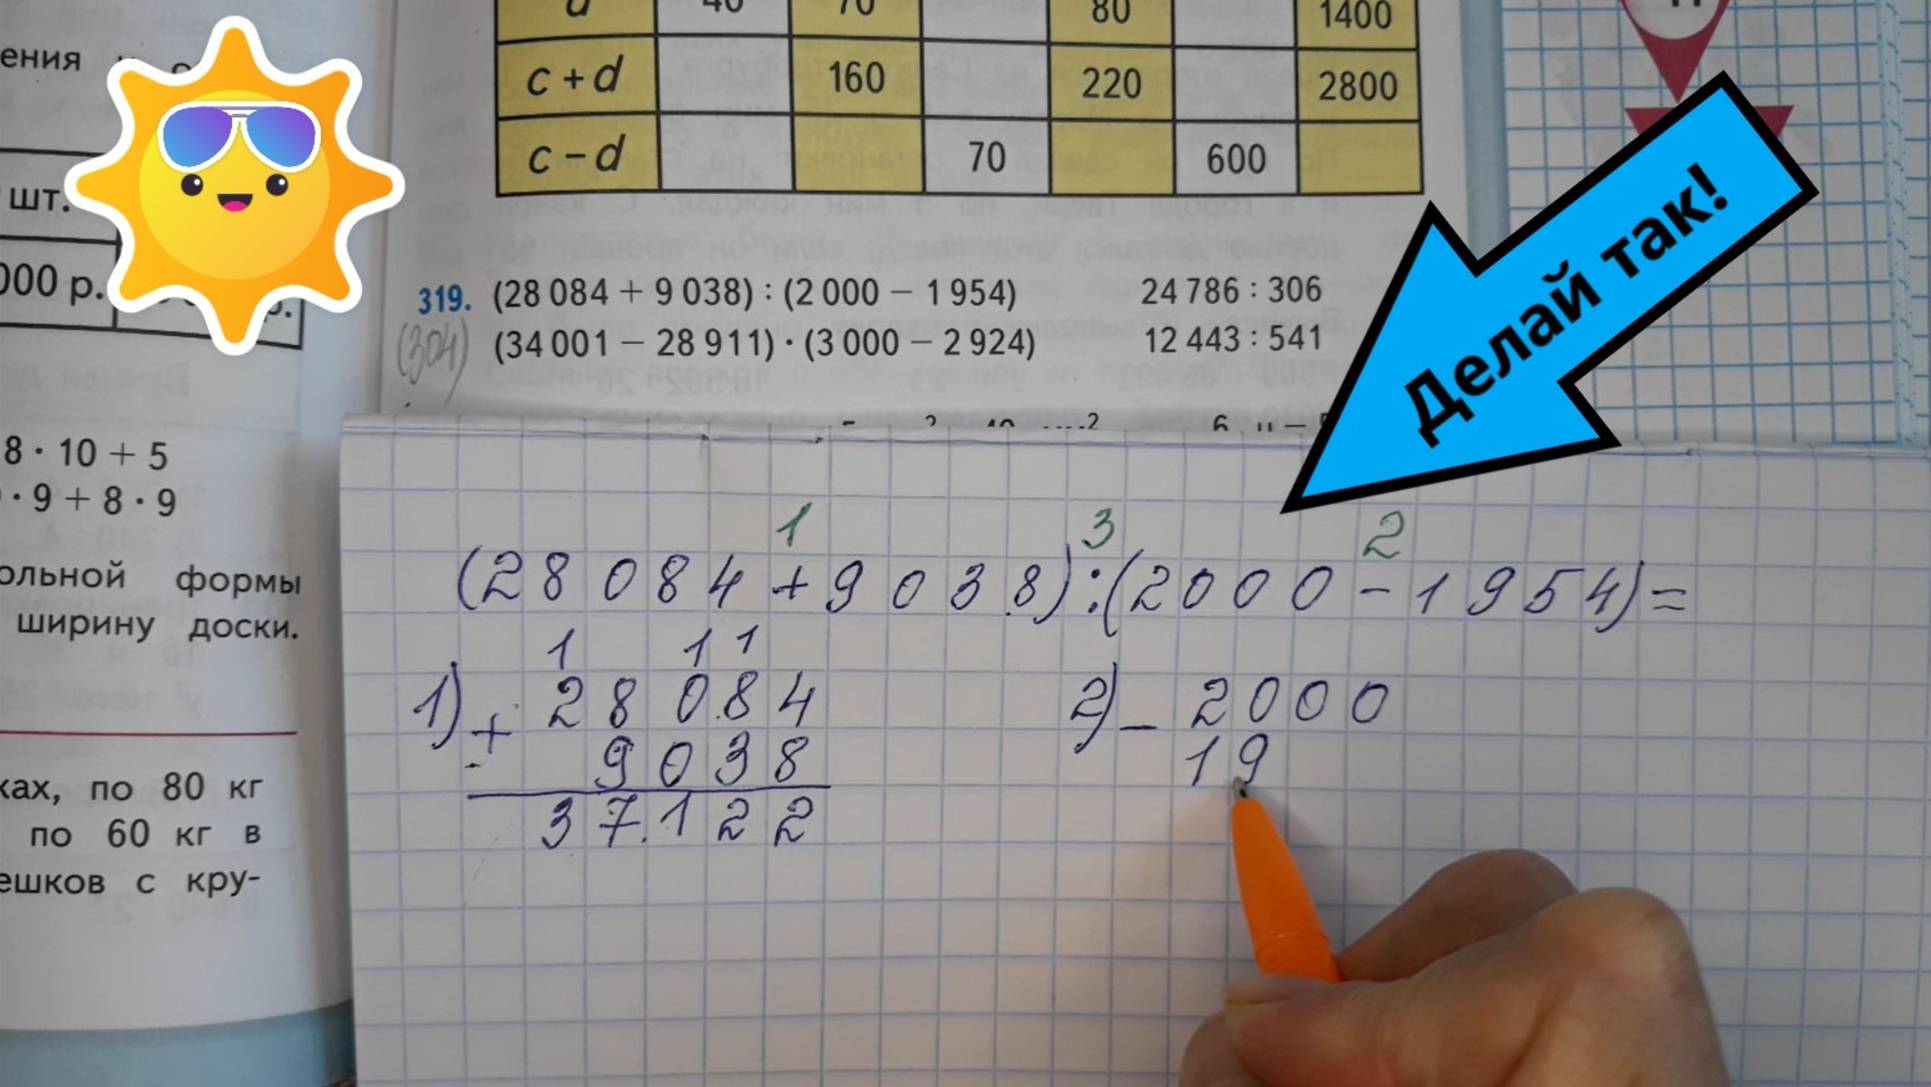 ения
шт.
000 р.
8 · 10 + 5
· 9 + 8 · 9
ольной формы
ширину доски.
ках, по 80 кг
по 60 кг в
ешков с кру-
d 40 70 80 1400
c + d 160 220 2800
c − d 70 600
319. (28 084 + 9 038) : (2 000 − 1 954) 24 786 : 306
(304) (34 001 − 28 911) · (3 000 − 2 924) 12 443 : 541
Делай так!
1 3 2
(28 084 + 9 038) : (2000 − 1 954) =
1 1 1
1) + 28 084
9038
37.122
2) − 2000
19